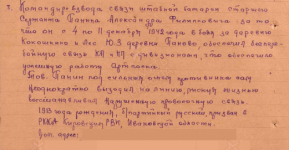 7. Командира взвода связи штабной батареи старшего
Сержанта Ганина Александра Филипповича за то,
что он с 4 по 11 декабря 1942 года в боях за деревню
и лес Ю.З. деревни обеспечил беспере-
бойную связь КП и НП с дивизионом, что обеспечило
успешную работу Артогня.
Тов. Ганин под сильным огнем противника
Неоднократно выходил на линию, рискуя жизнью
восстанавливал нарушенную проволочную связь.
рождения, русский, призван в
РККА Кировским РВК, Ивановской области.